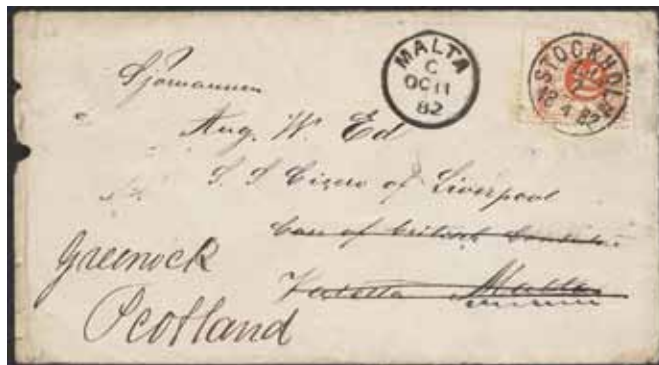 MALTA
C
OC 11
82
STOCKHOLM
4 82
Sjömannen
Aug. W. Ed
S. S Cicero of Liverpool
Care of British Consul
Valetta Malta
Greenock
Scotland